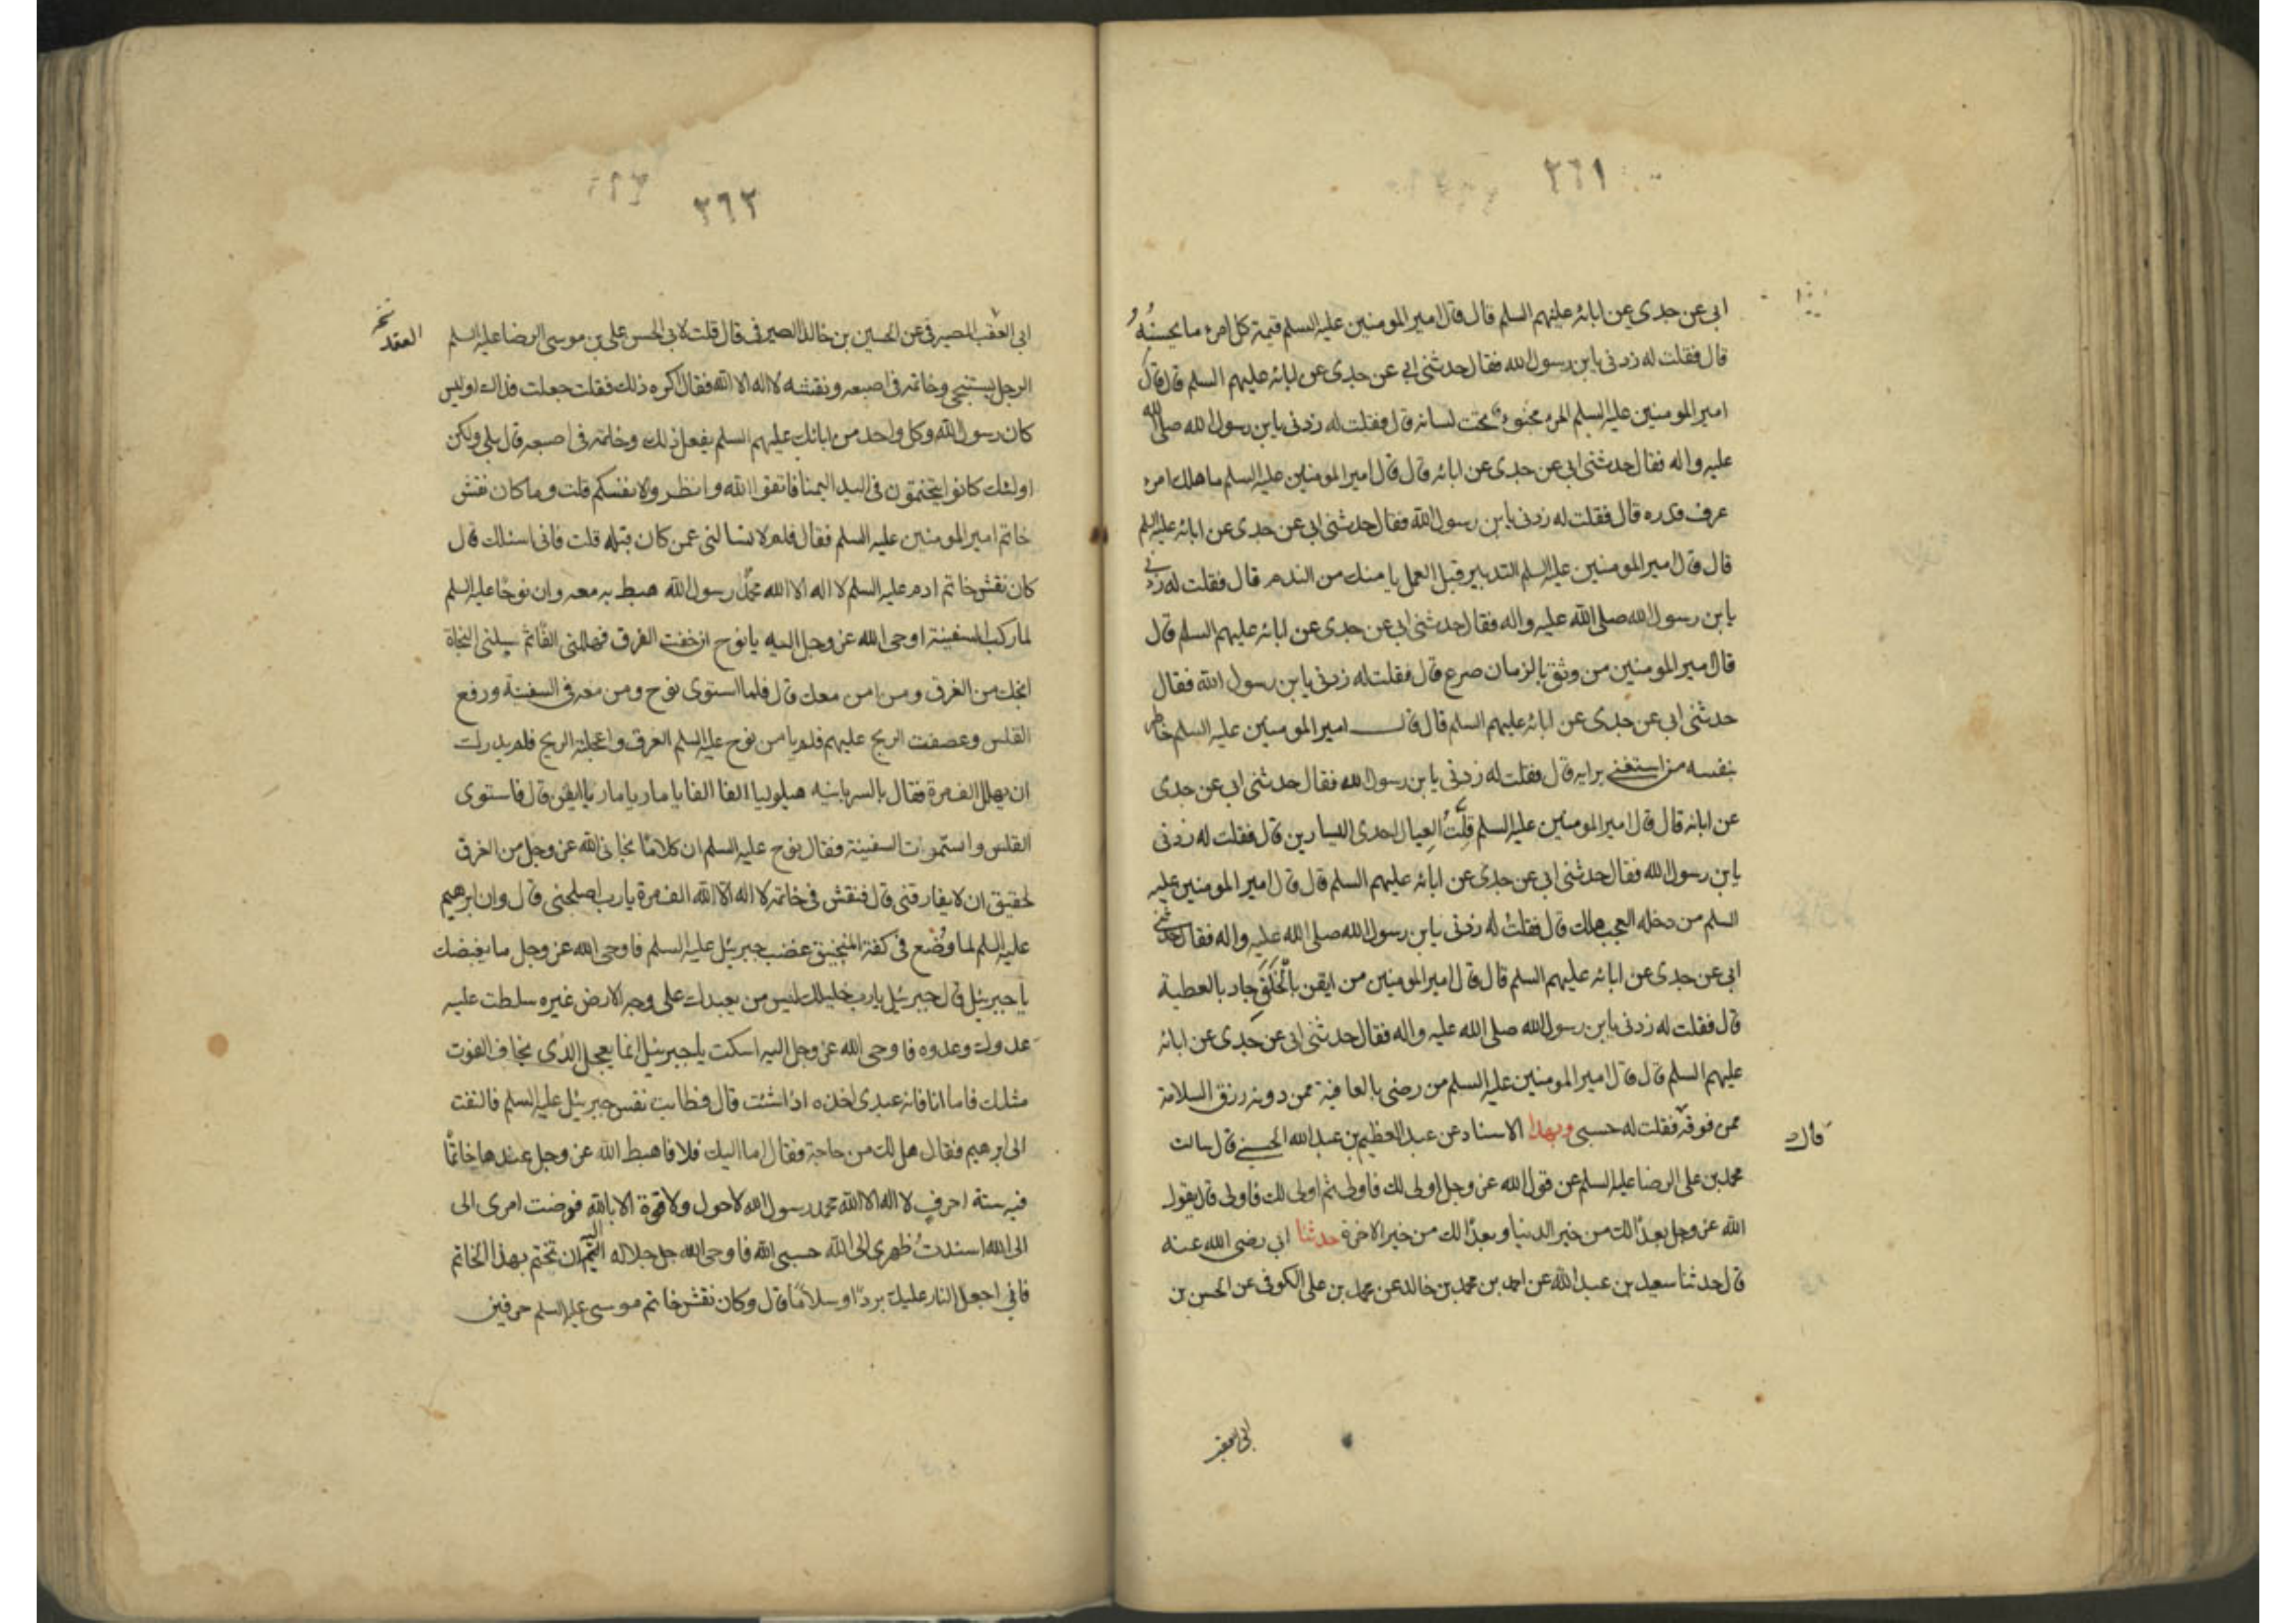 ٢٦١
ابى عن جدى عن ابائه عليهم السلم قال قال امير المومنين عليه السلم قيمة كل امرء ما يحسنُهُ
قال فقلت له زدنى يابن رسول الله فقال حدثنى ابى عن جدى عن ابائه عليهم السلم قال قال
امير المومنين عليه السلم المرء مخبوء تحت لسانه قال فقلت له زدنى يابن رسول الله صلى الله
عليه واله فقال حدثنى ابى عن جدى عن ابائه قال قال امير المومنين عليه السلم ما هلك امرء
عرف قدره قال فقلت له زدنى يابن رسول الله فقال حدثنى ابى عن جدى عن ابائه عليهم السلم
قال قال امير المومنين عليه السلم التدبير قبل العمل يامنك من الندم قال فقلت له زدنى
يابن رسول الله صلى الله عليه واله فقال حدثنى ابى عن جدى عن ابائه عليهم السلم قال
قال امير المومنين من وثق بالزمان صرع قال فقلت له زدنى يابن رسول الله فقال
حدثنى ابى عن جدى عن ابائه عليهم السلم قال قال امير المومنين عليه السلم خاطر
بنفسه من استغنى برايه قال فقلت له زدنى يابن رسول الله فقال حدثنى ابى عن جدى
عن ابائه قال قال امير المومنين عليه السلم قلّتُ العيال احدى اليسارين قال فقلت له زدنى
يابن رسول الله فقال حدثنى ابى عن جدى عن ابائه عليهم السلم قال قال امير المومنين عليه
السلم من دخله العجب هلك قال فقلت له زدنى يابن رسول الله صلى الله عليه واله فقال حدثنى
ابى عن جدى عن ابائه عليهم السلم قال قال امير المومنين من ايقن بالخَلَفِ جاد بالعطية
قال فقلت له زدنى يابن رسول الله صلى الله عليه واله فقال حدثنى ابى عن جدى عن ابائه
عليهم السلم قال قال امير المومنين عليه السلم من رضى بالعافية ممن دونه رزق السلامة
ممن فوقه فقلت له حسبى وبهذا الاسناد عن عبد العظيم بن عبد الله الحسنى قال سالت
قال
محمد بن على الرضا عليه السلم عن قول الله عز وجل اولى لك فاولى ثم اولى لك فاولى قال يقول
الله عز وجل بعدًا لك من خير الدنيا وبعدًا لك من خير الاخرة حدثنا ابى رضى الله عنه
قال حدثنا سعيد بن عبد الله عن احمد بن محمد بن خالد عن محمد بن على الكوفى عن الحسن بن
ابى العقب
٢٦٢
ابى العقب الصيرفى عن الحسين بن خالد الصيرفى قال قلت لابى الحسن على بن موسى الرضا عليه السلم
العقد
الرجل يستنجى وخاتمه فى اصبعه ونقشه لا اله الا الله فقال اكره ذلك فقلت جعلت فداك اوليس
كان رسول الله وكل واحد من ابائك عليهم السلم يفعل ذلك وخاتمه فى اصبعه قال بلى ولكن
اولئك كانوا يتختمون فى اليد اليمنا فاتقوا الله وانظروا لانفسكم قلت وما كان نقش
خاتم امير المومنين عليه السلم فقال فلم لا تسالنى عمن كان قبله قلت فانى اسئلك قال
كان نقش خاتم ادم عليه السلم لا اله الا الله محمد رسول الله هبط به معه وان نوحًا عليه السلم
لما ركب السفينة اوحى الله عز وجل اليه يا نوح ان خفت الغرق فهللنى الفًا ثم سلنى النجاة
انجك من الغرق ومن امن معك قال فلما استوى نوح ومن معه فى السفينة ورفع
القلس وعصفت الريح عليهم فلم يامن نوح عليه السلم الغرق واعجلته الريح فلم يدرك
ان يهلل الف مرة فقال بالسريانيه هيلوليا الفا الفا يا ماريا ماريا ايقن قال فاستوى
القلس واستمرت السفينة فقال نوح عليه السلم ان كلامًا نجانى الله عز وجل من الغرق
لحقيق ان لا يفارقنى قال فنقش فى خاتمه لا اله الا الله الف مرة يارب اصلحنى قال وان ابرهيم
عليه السلم لما وُضع فى كفة المنجنيق غضب جبرئيل عليه السلم فاوحى الله عز وجل ما يغضبك
يا جبرئيل قال جبرئيل يارب خليلك ليس من يعبدك على وجه الارض غيره سلطت عليه
عدوك وعدوه فاوحى الله عز وجل اليه اسكت يا جبرئيل انما يعجل الذى يخاف الفوت
مثلك فاما انا فانه عبدى اخذه اذا شئت قال فطابت نفس جبرئيل عليه السلم فالتفت
الى ابرهيم فقال هل لك من حاجة فقال اما اليك فلا فاهبط الله عز وجل عندها خاتمًا
فيه ستة احرف لا اله الا الله محمد رسول الله لا حول ولا قوة الا بالله فوضت امرى الى
الى الله اسندتُ ظهرى الى الله حسبى الله فاوحى الله جل جلاله اليه ان تختم بهذا الخاتم
فانى اجعل النار عليك بردًا وسلامًا قال وكان نقش خاتم موسى عليه السلم حرفين